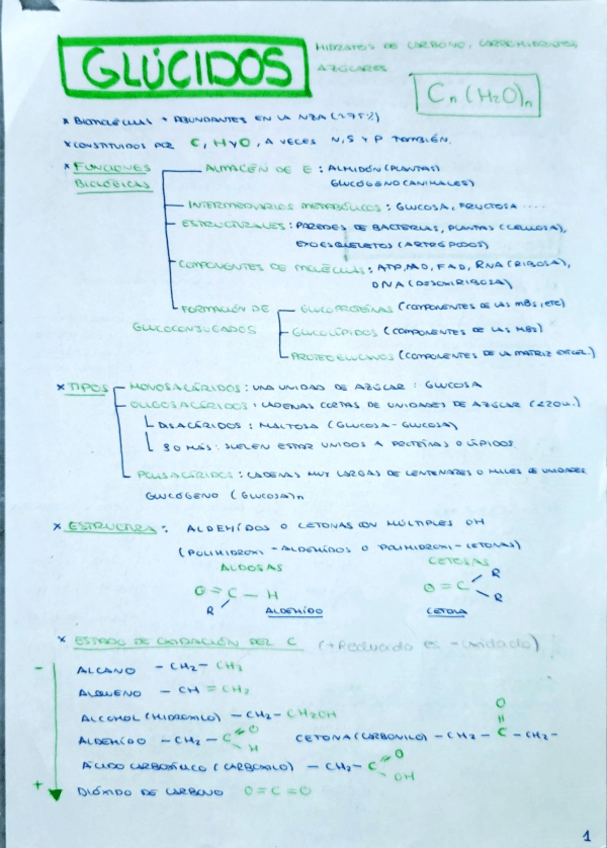 GLÚCIDOS
HIDRATOS DE CARBONO, CARBOHIDRATOS,
AZÚCARES
Cn (H2O)n
* BIOMOLÉCULAS + ABUNDANTES EN LA NZA (>75%)
* CONSTITUIDOS POR C, H y O, A VECES N, S Y P TAMBIÉN.
* FUNCIONES BIOLÓGICAS
ALMACÉN DE E : ALMIDÓN (PLANTAS)
GLUCÓGENO (ANIMALES)
INTERMEDIARIOS METABÓLICOS : GLUCOSA, FRUCTOSA ....
ESTRUCTURALES : PAREDES DE BACTERIAS, PLANTAS (CELULOSA),
EXOESQUELETOS (ARTRÓPODOS)
COMPONENTES DE MOLÉCULAS : ATP, NAD, FAD, RNA (RIBOSA),
DNA (DESOXIRRIBOSA)
FORMACIÓN DE GLUCOCONJUGADOS
GLUCOPROTEÍNAS (COMPONENTES DE LAS MBS, ETC)
GLUCOLÍPIDOS (COMPONENTES DE LAS MBS)
PROTEOGLUCANOS (COMPONENTES DE LA MATRIZ EXCEL.)
* TIPOS
MONOSACÁRIDOS : UNA UNIDAD DE AZÚCAR : GLUCOSA
OLIGOSACÁRIDOS : CADENAS CORTAS DE UNIDADES DE AZÚCAR (<20u.)
DISACÁRIDOS : MALTOSA (GLUCOSA - GLUCOSA)
3 O MÁS : SUELEN ESTAR UNIDOS A PROTEÍNAS O LÍPIDOS.
POLISACÁRIDOS : CADENAS MUY LARGAS DE CENTENARES O MILES DE UNIDADES
GLUCÓGENO (GLUCOSA)n
* ESTRUCTURA : ALDEHÍDOS O CETONAS CON MÚLTIPLES OH
(POLIHIDROXI - ALDEHÍDOS O POLIHIDROXI - CETONAS)
ALDOSAS CETOSAS
O = C - H
R
ALDEHÍDO
O = C
R
R
CETONA
* ESTADO DE OXIDACIÓN DEL C (+ Reducido es - oxidado)
-
ALCANO - CH2 - CH3
ALQUENO - CH = CH2
ALCOHOL (HIDROXILO) - CH2 - CH2OH
ALDEHÍDO - CH2 - C = O
H
CETONA (CARBONILO) - CH2 - C - CH2 -
O
ÁCIDO CARBOXÍLICO (CARBOXILO) - CH2 - C = O
OH
+
DIÓXIDO DE CARBONO O = C = O
1